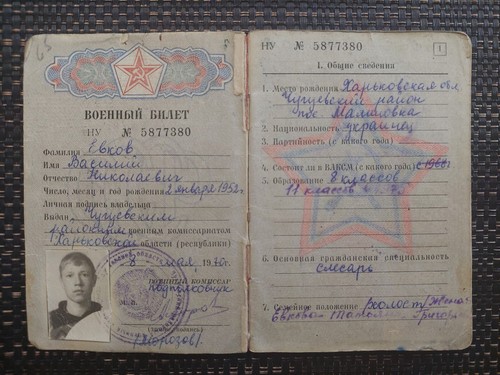 ВОЕННЫЙ БИЛЕТ
НУ № 5877380
Фамилия Евков
Имя Василий
Отчество Николаевич
Число, месяц и год рождения 2 января 1952 г.
Личная подпись владельца
Выдан Чугуевским
районным военным комиссариатом
Харьковской области (республики)
8 мая 1970 г.
ВОЕННЫЙ КОМИССАР
подполковник
М. П.
(Морозов)
НУ № 5877380
1
I. Общие сведения
1. Место рождения Харьковская обл
Чугуевский район
пос. Малиновка
2. Национальность украинец
3. Партийность (с какого года)
4. Состоит ли в ВЛКСМ (с какого года) с 1968 г
5. Образование 8 классов
11 классов
6. Основная гражданская специальность
слесарь
7. Семейное положение холост/жена
Евкова